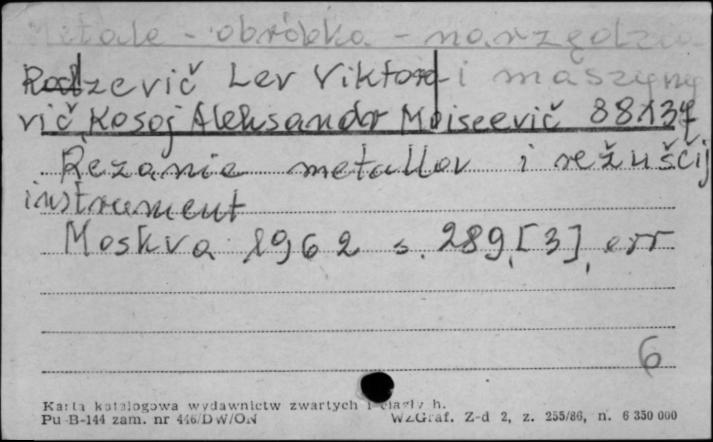 Metale - obróbka - narzędzia
i maszyny
Radzevič Lev Viktoro-
vič, Kosoj Aleksandr Moiseevič 88137
Rezanie metallov i režuščij
instrument
Moskva 1962 s. 289, [3], err
6
Karta katalogowa wydawnictw zwartych i ciągły h.
Pu-B-144 zam. nr 446/DW/ON WZGraf. Z-d 2, z. 255/86, n. 6 350 000